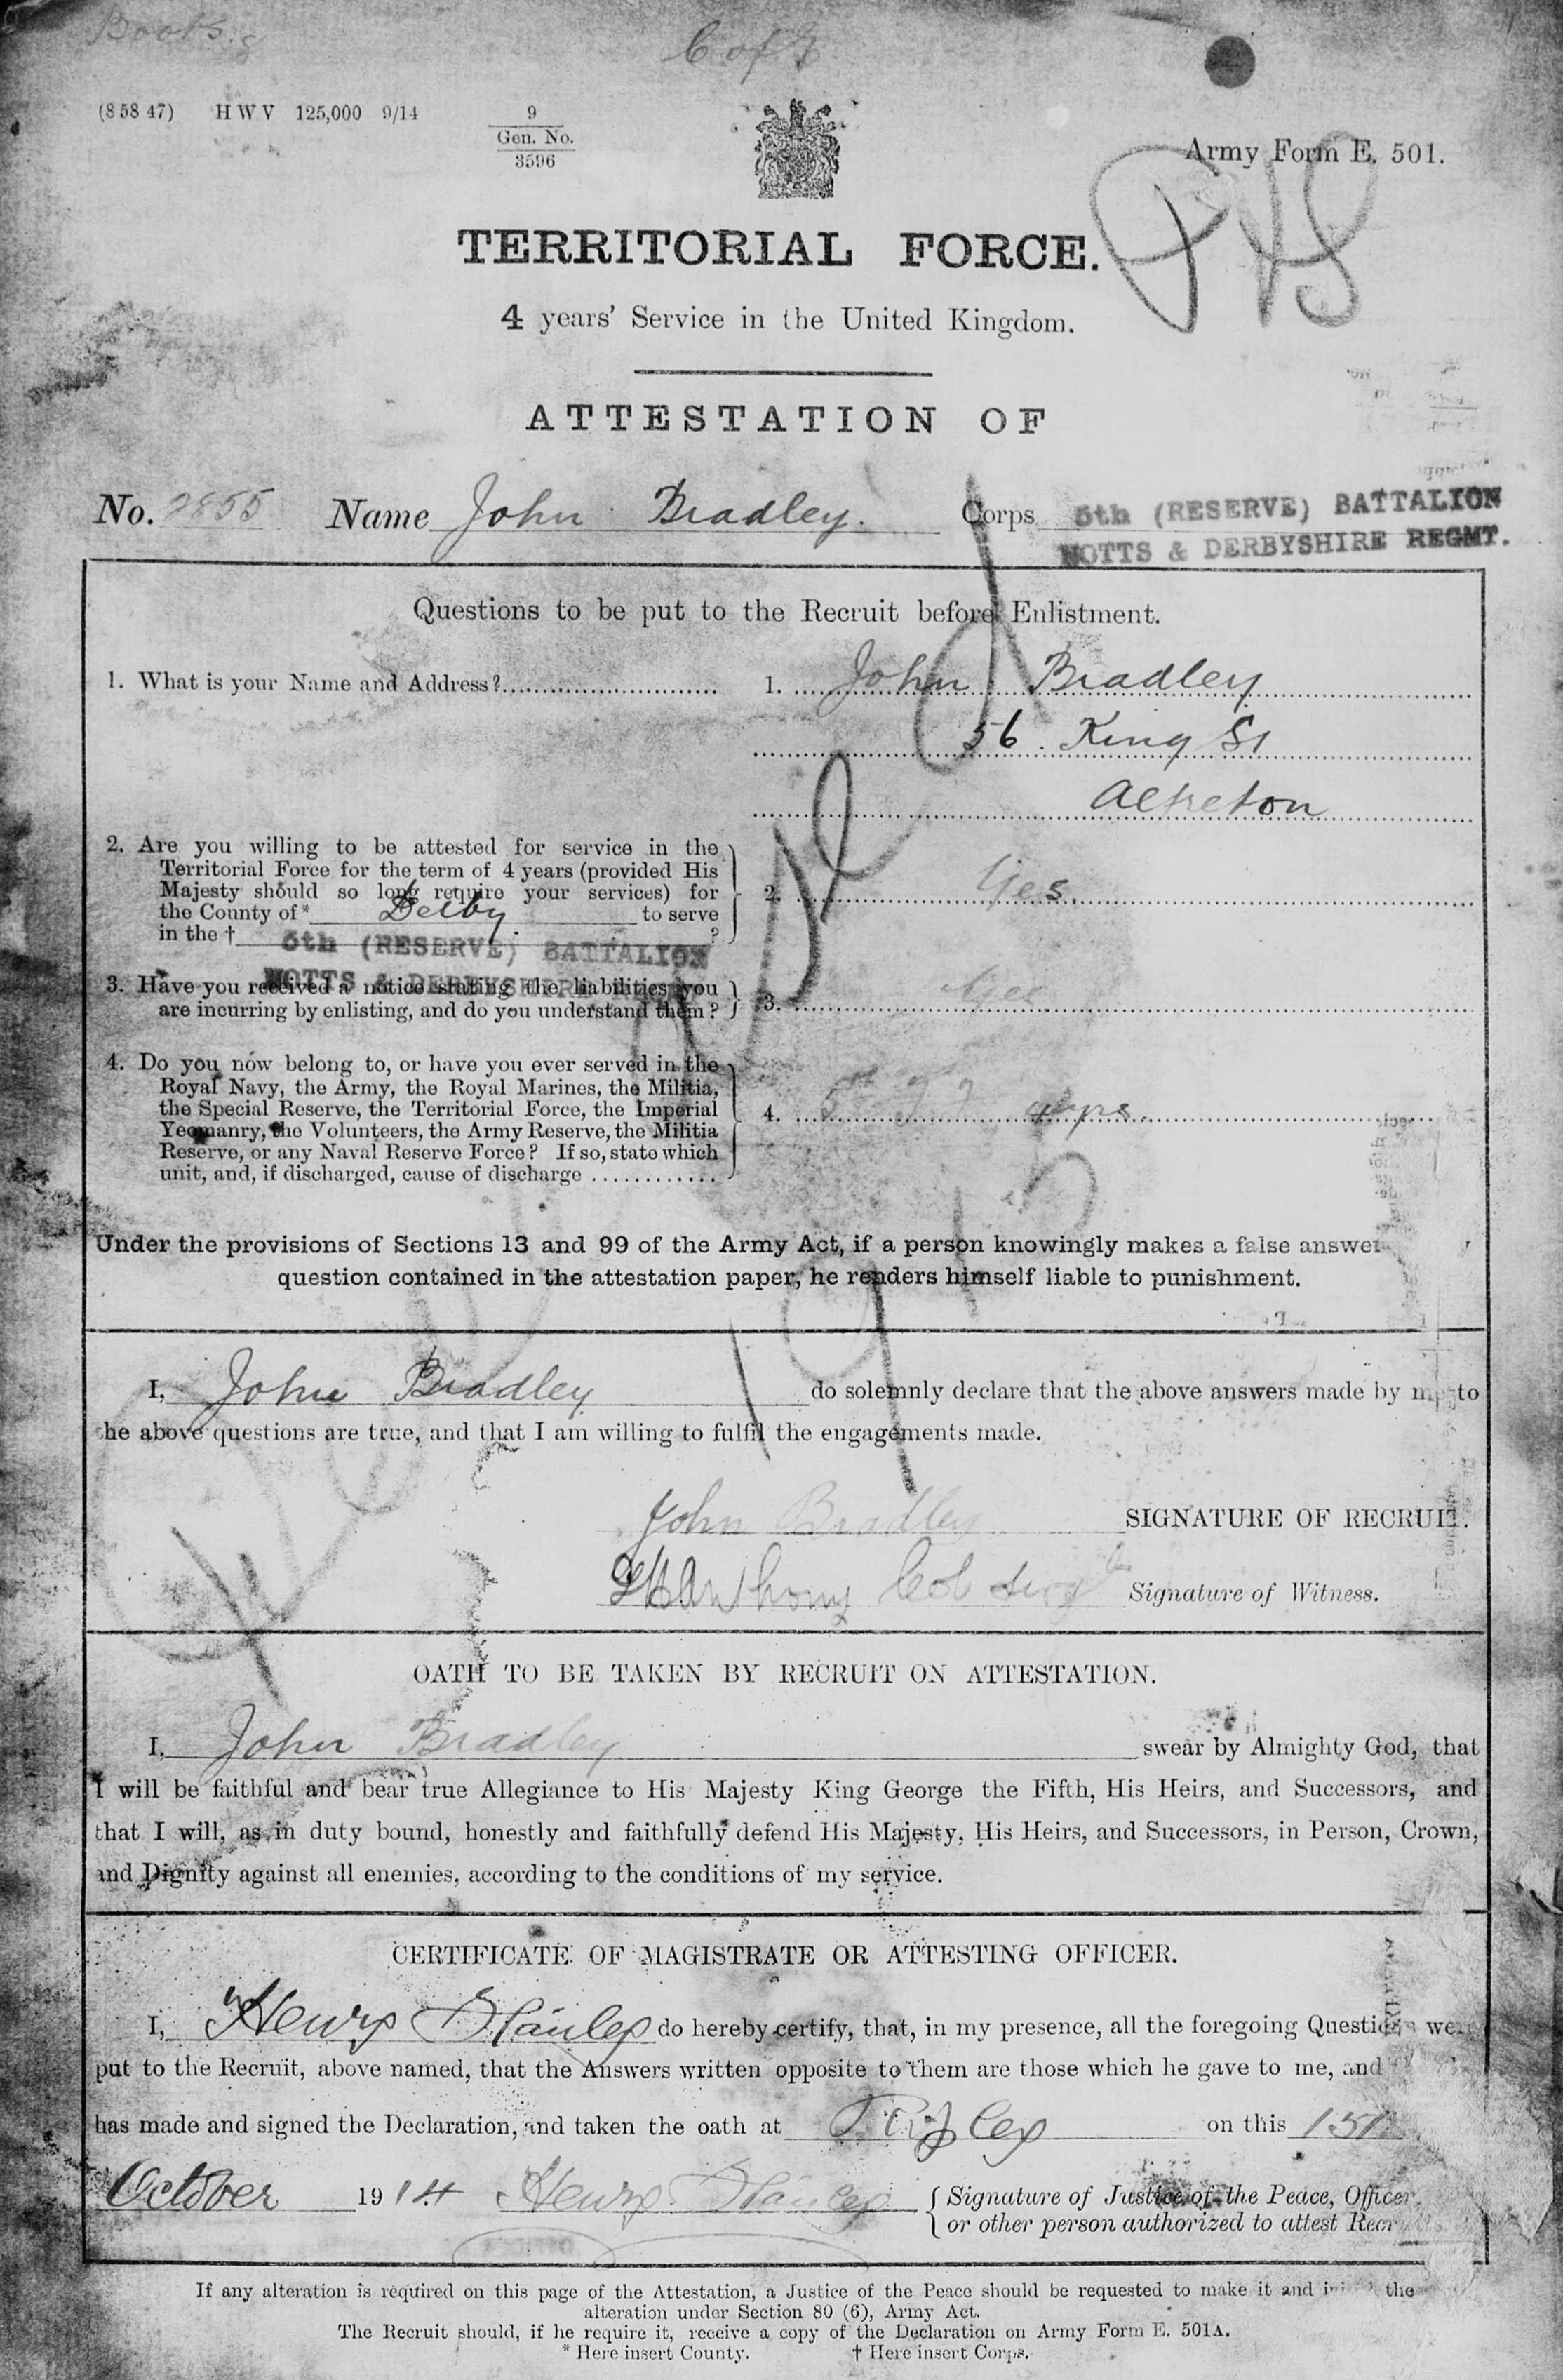 Boots.
(8 58 47) H W V 125,000 9/14
9
Gen. No.
3596
Army Form E. 501.
TERRITORIAL FORCE.
4 years' Service in the United Kingdom.
ATTESTATION OF
No. 2855 Name John Bradley. Corps 5th (RESERVE) BATTALION
NOTTS & DERBYSHIRE REGMT.
Questions to be put to the Recruit before Enlistment.
1. What is your Name and Address? 1. John Bradley
56. King St
Alfreton
2. Are you willing to be attested for service in the
Territorial Force for the term of 4 years (provided His
Majesty should so long require your services) for
the County of* Derby. to serve
in the † 5th (RESERVE) BATTALION ?
2. Yes.
NOTTS & DERBYSHIRE
3. Have you received a notice stating the liabilities you
are incurring by enlisting, and do you understand them? 3. Yes
4. Do you now belong to, or have you ever served in the
Royal Navy, the Army, the Royal Marines, the Militia,
the Special Reserve, the Territorial Force, the Imperial
Yeomanry, the Volunteers, the Army Reserve, the Militia
Reserve, or any Naval Reserve Force? If so, state which
unit, and, if discharged, cause of discharge
4. 5th 4 yrs.
Under the provisions of Sections 13 and 99 of the Army Act, if a person knowingly makes a false answer
question contained in the attestation paper, he renders himself liable to punishment.
I, John Bradley do solemnly declare that the above answers made by me to
he above questions are true, and that I am willing to fulfil the engagements made.
John Bradley SIGNATURE OF RECRUIT.
Anthony Col Sergt Signature of Witness.
OATH TO BE TAKEN BY RECRUIT ON ATTESTATION.
I, John Bradley swear by Almighty God, that
I will be faithful and bear true Allegiance to His Majesty King George the Fifth, His Heirs, and Successors, and
that I will, as in duty bound, honestly and faithfully defend His Majesty, His Heirs, and Successors, in Person, Crown,
and Dignity against all enemies, according to the conditions of my service.
CERTIFICATE OF MAGISTRATE OR ATTESTING OFFICER.
I, Henry Stanley do hereby certify, that, in my presence, all the foregoing Questions were
put to the Recruit, above named, that the Answers written opposite to them are those which he gave to me, and
has made and signed the Declaration, and taken the oath at Ripley on this 15th
October 1914 Henry Stanley { Signature of Justice of the Peace, Officer,
or other person authorized to attest Recruits
If any alteration is required on this page of the Attestation, a Justice of the Peace should be requested to make it and the
alteration under Section 80 (6), Army Act.
The Recruit should, if he require it, receive a copy of the Declaration on Army Form E. 501A.
* Here insert County. † Here insert Corps.